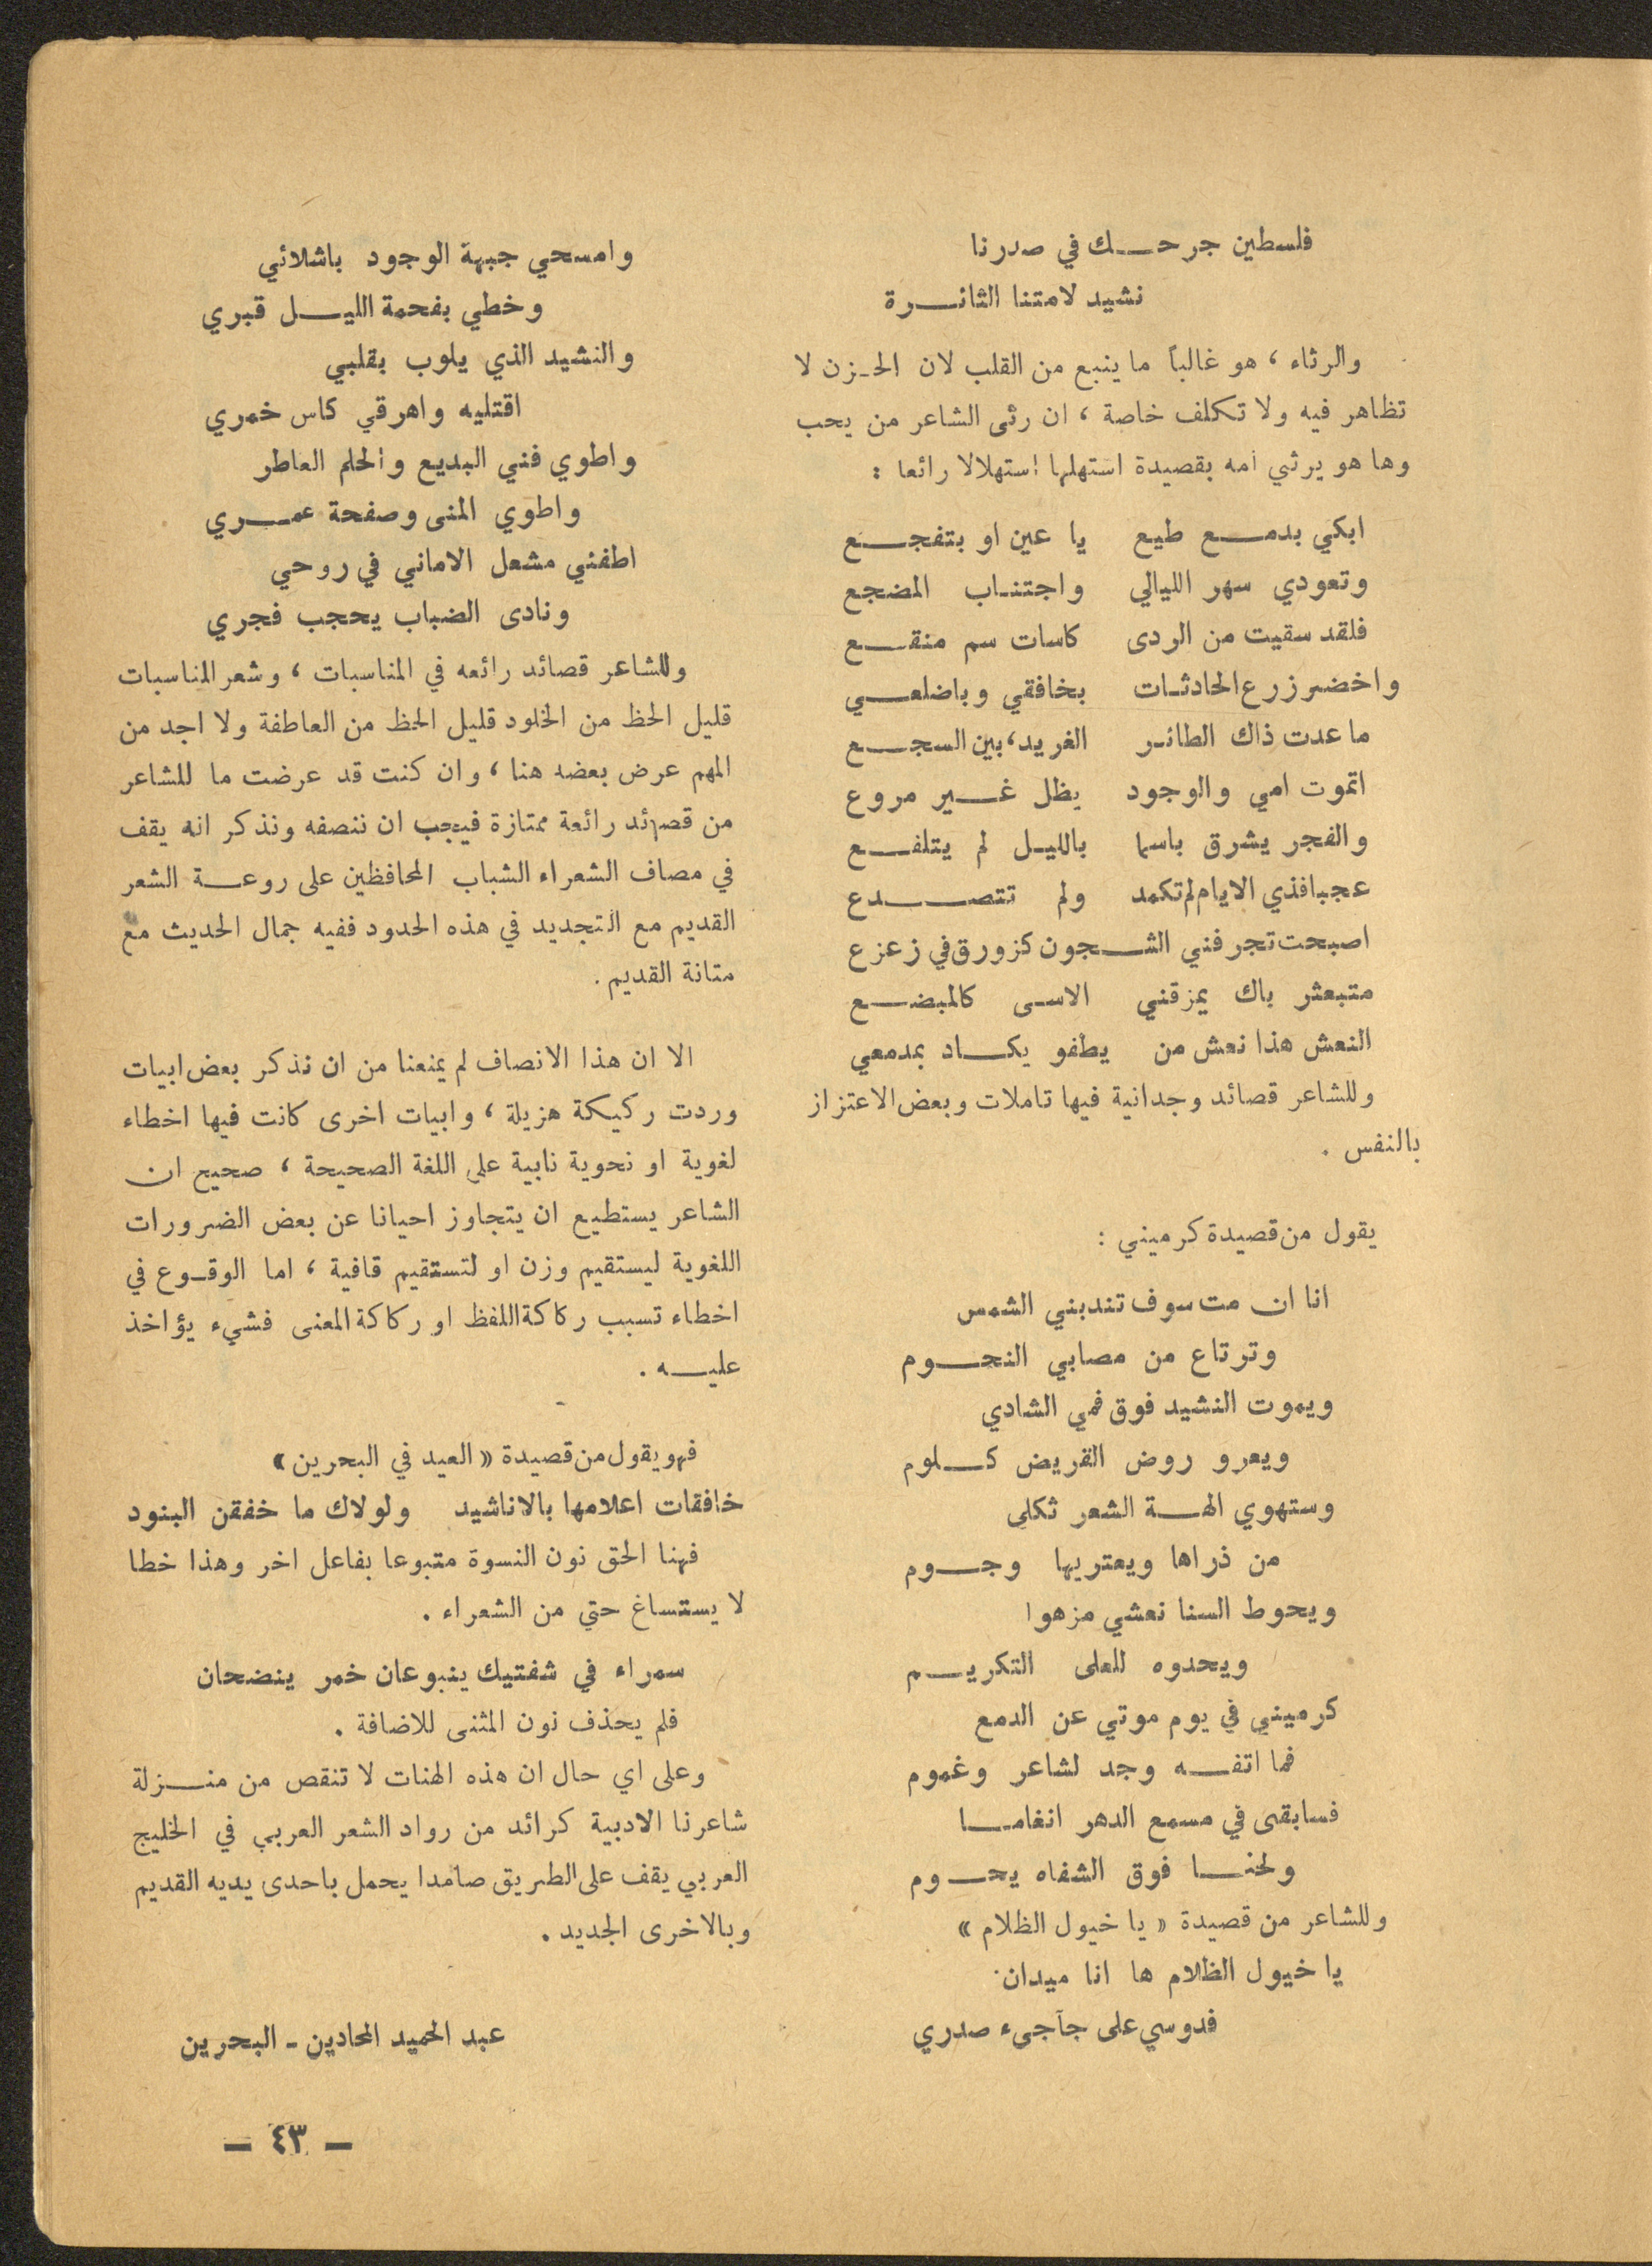 فلسطين جرحك في صدرنا
نشيد لامتنا الثائرة
والرثاء ، هو غالباً ما ينبع من القلب لان الحزن لا
تظاهر فيه ولا تكلف خاصة ، ان رثى الشاعر من يحب
وها هو يرثي امه بقصيدة استهلها استهلالا رائعا :
ابكي بدمع طيع يا عين او بتفجع
وتعودي سهر الليالي واجتناب المضجع
فلقد سقيت من الردى كاسات سم منقع
واخضر زرع الحادثات بخافقي وباضلعي
ما عدت ذاك الطائر الغريد، بين السجع
اتموت امي والوجود يظل غير مروع
والفجر يشرق باسما بالليل لم يتلفع
عجبا فذي الايام لم تكمد ولم تتصدع
اصبحت تجرفني الشجون كزورق في زعزع
متبعثر باك يمزقني الاسى كالمبضع
النعش هذا نعش من يطفو يكاد بمدمعي
وللشاعر قصائد وجدانية فيها تاملات وبعض الاعتزاز
بالنفس .
يقول من قصيدة كرميني :
انا ان مت سوف تندبني الشمس
وترتاع من مصابي النجوم
ويموت النشيد فوق فمي الشادي
ويعرو روض القريض كلوم
وستهوي الهة الشعر ثكلى
من ذراها ويعتريها وجوم
ويحوط السنا نعشي مزهوا
ويحدوه للعلى التكريم
كرميني في يوم موتي عن الدمع
فما اتفه وجد لشاعر وغموم
فسابقى في مسمع الدهر انغاما
ولحنا فوق الشفاه يحوم
وللشاعر من قصيدة « يا خيول الظلام »
يا خيول الظلام ها انا ميدان
فدوسي على جآجىء صدري
وامسحي جبهة الوجود باشلائي
وخطي بفحمة الليل قبري
والنشيد الذي يلوب بقلبي
اقتليه واهرقي كاس خمري
واطوي فني البديع والحلم العاطر
واطوي المنى وصفحة عمري
اطفئي مشعل الاماني في روحي
ونادى الضباب يحجب فجري
وللشاعر قصائد رائعه في المناسبات ، وشعر المناسبات
قليل الحظ من الخلود قليل الحظ من العاطفة ولا اجد من
المهم عرض بعضه هنا ، وان كنت قد عرضت ما للشاعر
من قصائد رائعة ممتازة فيجب ان ننصفه ونذكر انه يقف
في مصاف الشعراء الشباب المحافظين على روعة الشعر
القديم مع التجديد في هذه الحدود ففيه جمال الحديث مع
متانة القديم .
الا ان هذا الانصاف لم يمنعنا من ان نذكر بعض ابيات
وردت ركيكة هزيلة ، وابيات اخرى كانت فيها اخطاء
لغوية او نحوية نابية على اللغة الصحيحة ، صحيح ان
الشاعر يستطيع ان يتجاوز احيانا عن بعض الضرورات
اللغوية ليستقيم وزن او لتستقيم قافية ، اما الوقوع في
اخطاء تسبب ركاكة اللفظ او ركاكة المعنى فشيء يؤاخذ
عليه .
فهو يقول من قصيدة « العيد في البحرين »
خافقات اعلامها بالاناشيد ولولاك ما خفقن البنود
فهنا الحق نون النسوة متبوعا بفاعل اخر وهذا خطا
لا يستساغ حتى من الشعراء .
سمراء في شفتيك ينبوعان خمر ينضحان
فلم يحذف نون المثنى للاضافة .
وعلى اي حال ان هذه الهنات لا تنقص من منزلة
شاعرنا الادبية كرائد من رواد الشعر العربي في الخليج
العربي يقف على الطريق صامدا يحمل باحدى يديه القديم
وبالاخرى الجديد .
عبد الحميد المحادين - البحرين
- ٤٣ -